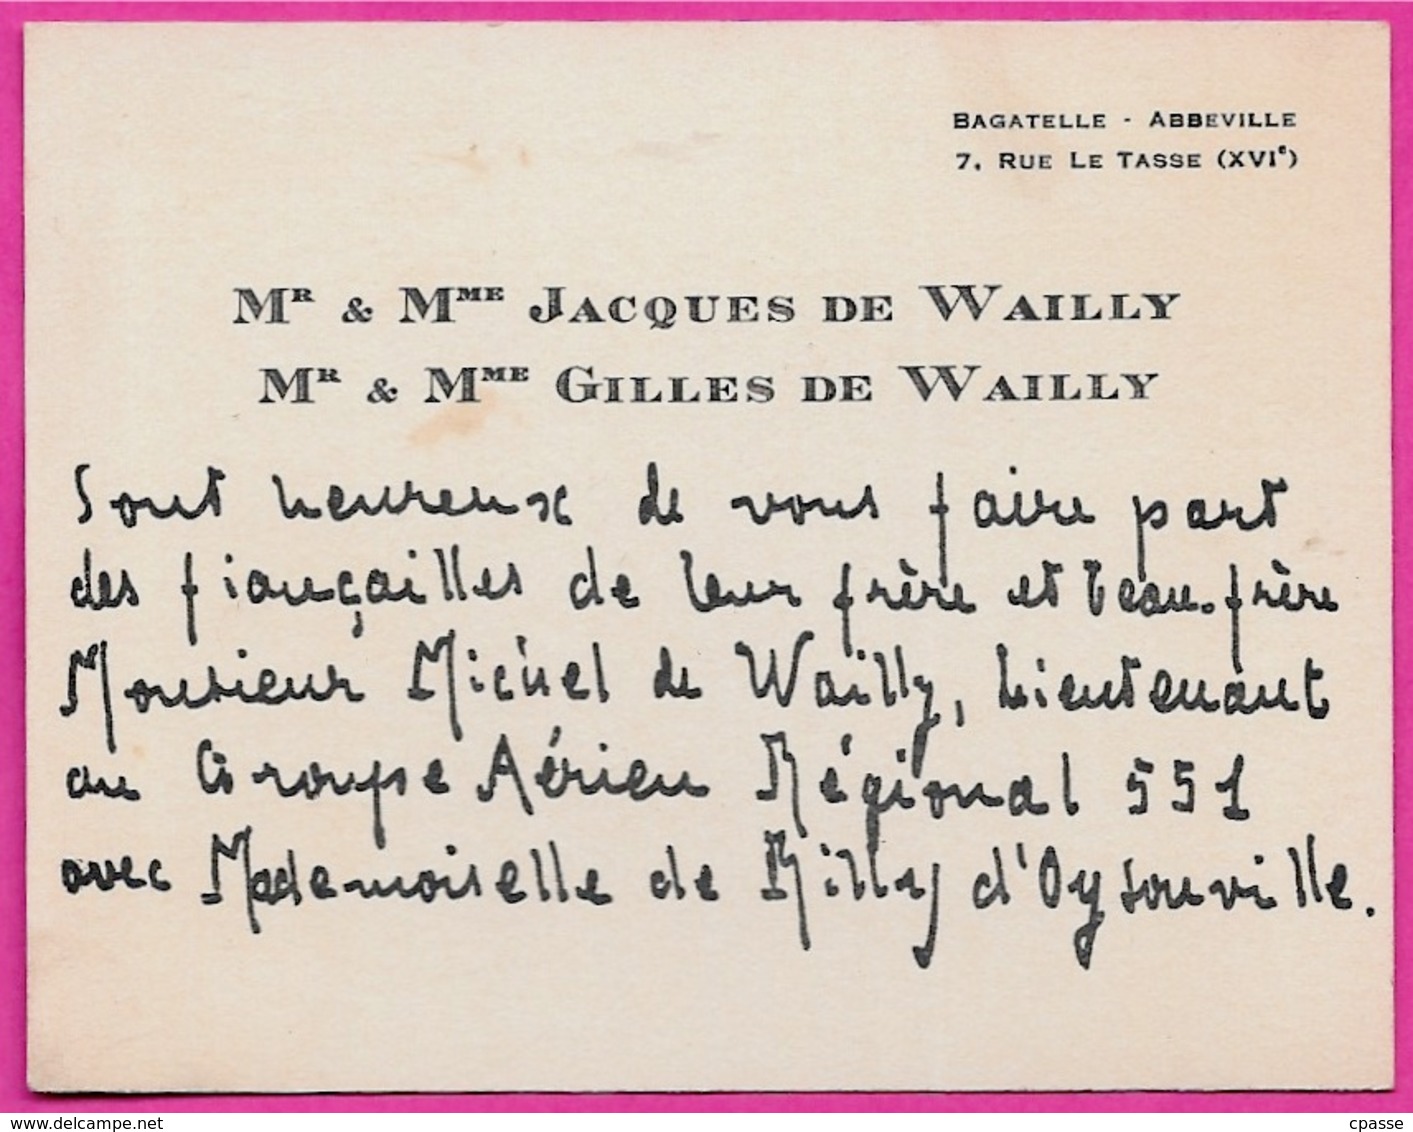 BAGATELLE - ABBEVILLE
7, RUE LE TASSE (XVIe)
MR & MME JACQUES DE WAILLY
MR & MME GILLES DE WAILLY
Sont heureux de vous faire part
des fiançailles de leur frère et beau-frère
Monsieur Michel de Wailly, Lieutenant
au Groupe Aérien Régional 551
avec Mademoiselle de Milly d'Oysonville.
www.delcampe.net
cpasse